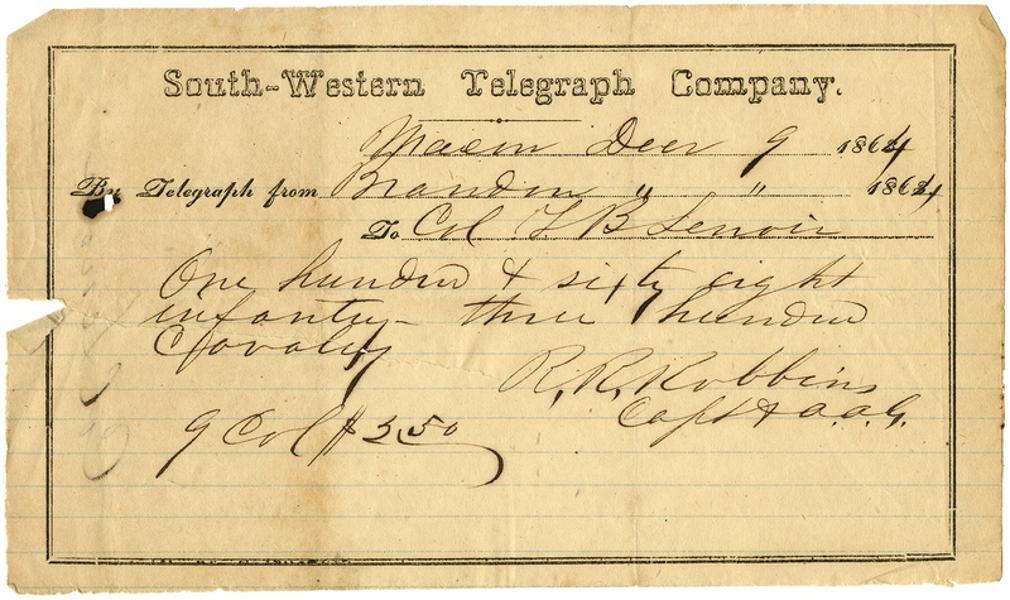 South-Western Telegraph Company.
Macon Decr 9 1864
By Telegraph from Brandon " " 1864
To Col T B Lenoir
One hundred & sixty eight
infantry - three hundred
Cavalry
R. R. Robbins
Capt & A.A.G.
9 Col $3.50